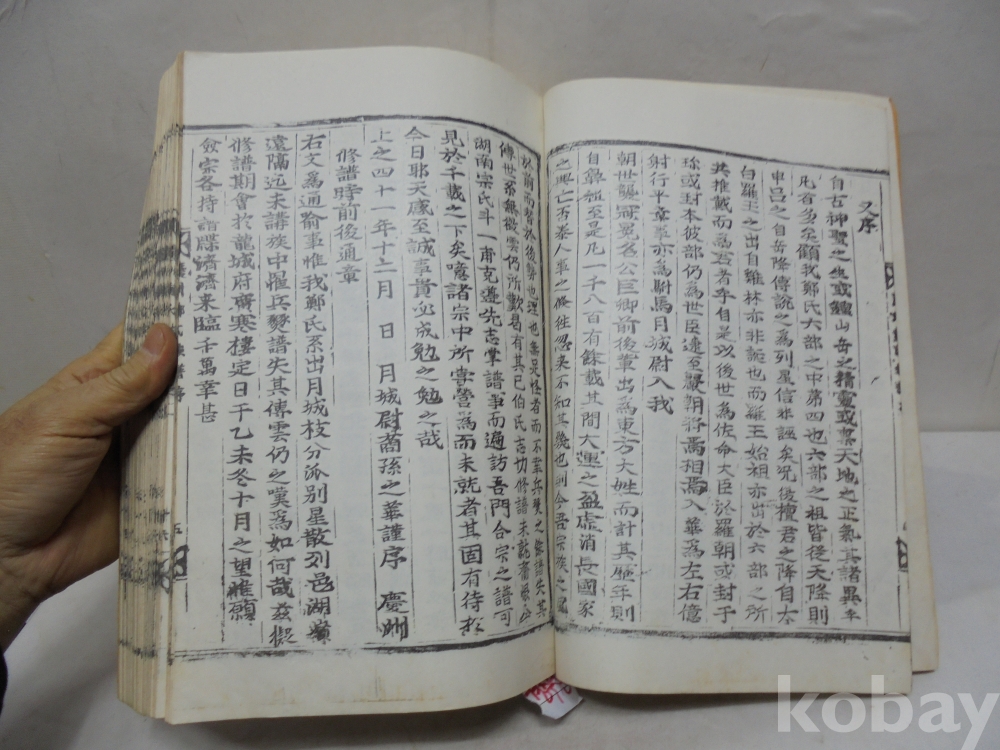 又序
自古神聖之生或鍾山岳之精靈或禀天地之正氣其諸異乎
凡者多矣顧我鄭氏六部之中第四也六部之祖皆從天降則
申呂之自岳降傅說之為列星信非誣矣况彼檀君之降自太
白羅王之出自雞林亦非誕也而羅王始祖亦出於六部之所
共推戴而為君者乎自是以後世為佐命大臣於羅朝或封于
珎或封本彼部仍為世臣逮至麗朝將焉相焉入華為左右億
射行平章事亦為駙馬月城尉入我
朝世襲冠冕名公巨卿前後輩出為東方大姓而計其歷年則
自鼻祖至是凡一千八百有餘載其間大運之盈虛消長國家
之興亡否泰人事之倏往忽来不知其幾也則今吾宗族之
於前而 於後勢也理也無足怪者而不幸兵燹之餘譜失其
傳世系無徵雲仍所歎曷有其已伯氏志切修譜未就
湖南宗氏斗一甫克遵先志掌譜事而遍訪吾門合宗之譜可
見於千載之下矣噫諸宗中所嘗營為而未就者其固有待於
今日耶天感至誠事貴必成勉之勉之哉
上之四十一年十二月 日 月城尉裔孫之華謹序 慶州
修譜時前後通章
右文為通喻事惟我鄭氏系出月城枝分派別星散列邑湖嶺
遠隔迄未講族中罹兵燹譜失其傳雲仍之嘆為如何哉玆擬
修譜期會於龍城府廣寒樓定日于乙未冬十月之望惟願
僉宗各持譜牒濟濟来臨千萬幸甚
五
kobay